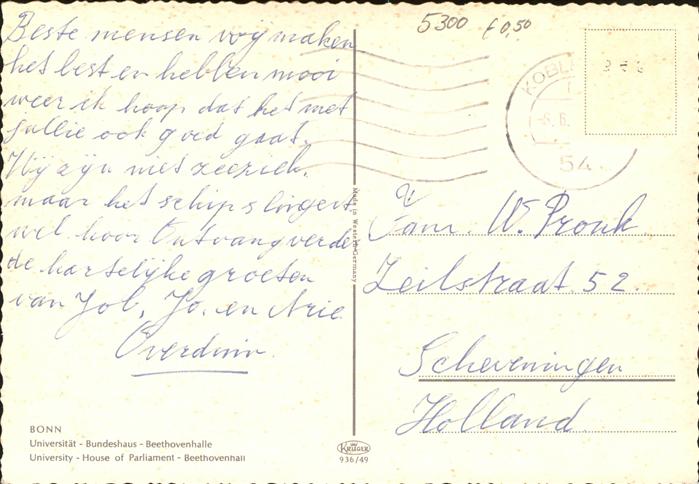 Beste mensen wij maken
het best en hebben mooi
weer ik hoop dat het met
jullie ook goed gaat.
Wij zijn niet zeeziek.
maar het schip slingert
wel hoor Ontvang verde
de hartelijke groeten
van Job, Jo. en Arie
Overduin.
5300 £0,50
KOBL
54
Fam. W. Pronk
Zeilstraat 52.
Scheveningen
Holland.
Made in Western Germany
BONN
Universität - Bundeshaus - Beethovenhalle
University - House of Parliament - Beethovenhall
KRÜGER
936/49